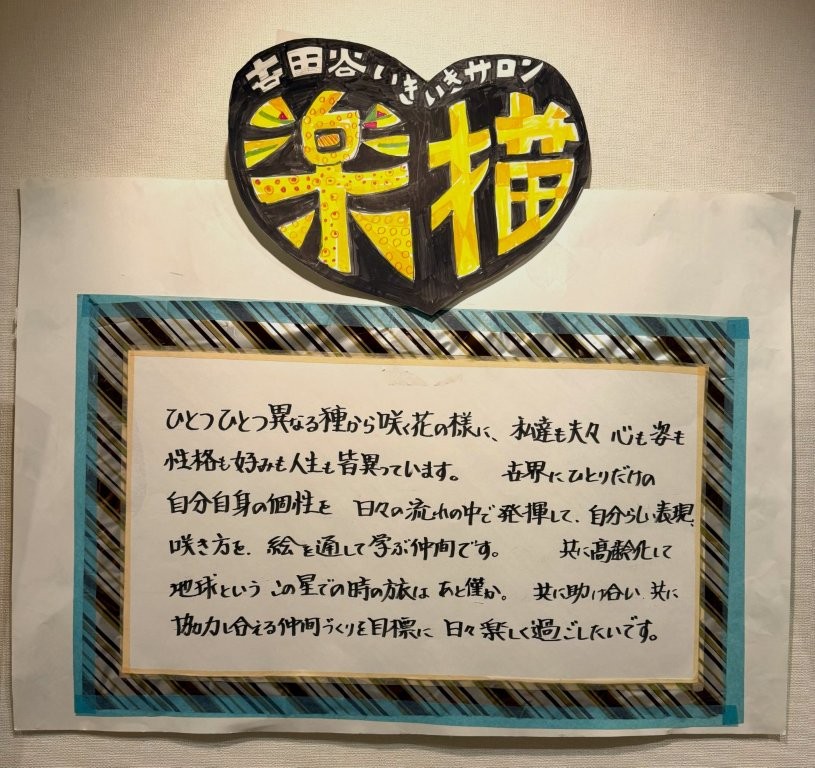 古田谷いきいきサロン
楽描
ひとつひとつ異なる種から咲く花の様に、私達も夫々 心も姿も
性格も好みも人生も皆異っています。 世界にひとりだけの
自分自身の個性を 日々の流れの中で発揮して、自分らしい表現、
咲き方を、絵を通して学ぶ仲間です。 共に高齢化して
地球という この星での時の旅は あと僅か。 共に助け合い 共に
協力し合える仲間づくりを目標に 日々楽しく過ごしたいです。